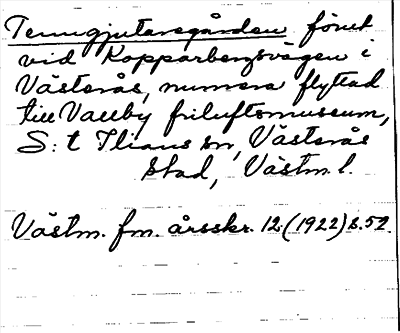 Tenngjutaregården förut
vid Kopparbergsvägen i
Västerås, numera flyttad
till Vallby friluftsmuseum,
S:t Ilians sn, Västerås
stad, Västm. l.
Västm. fm. årsskr. 12 (1922) s. 52.